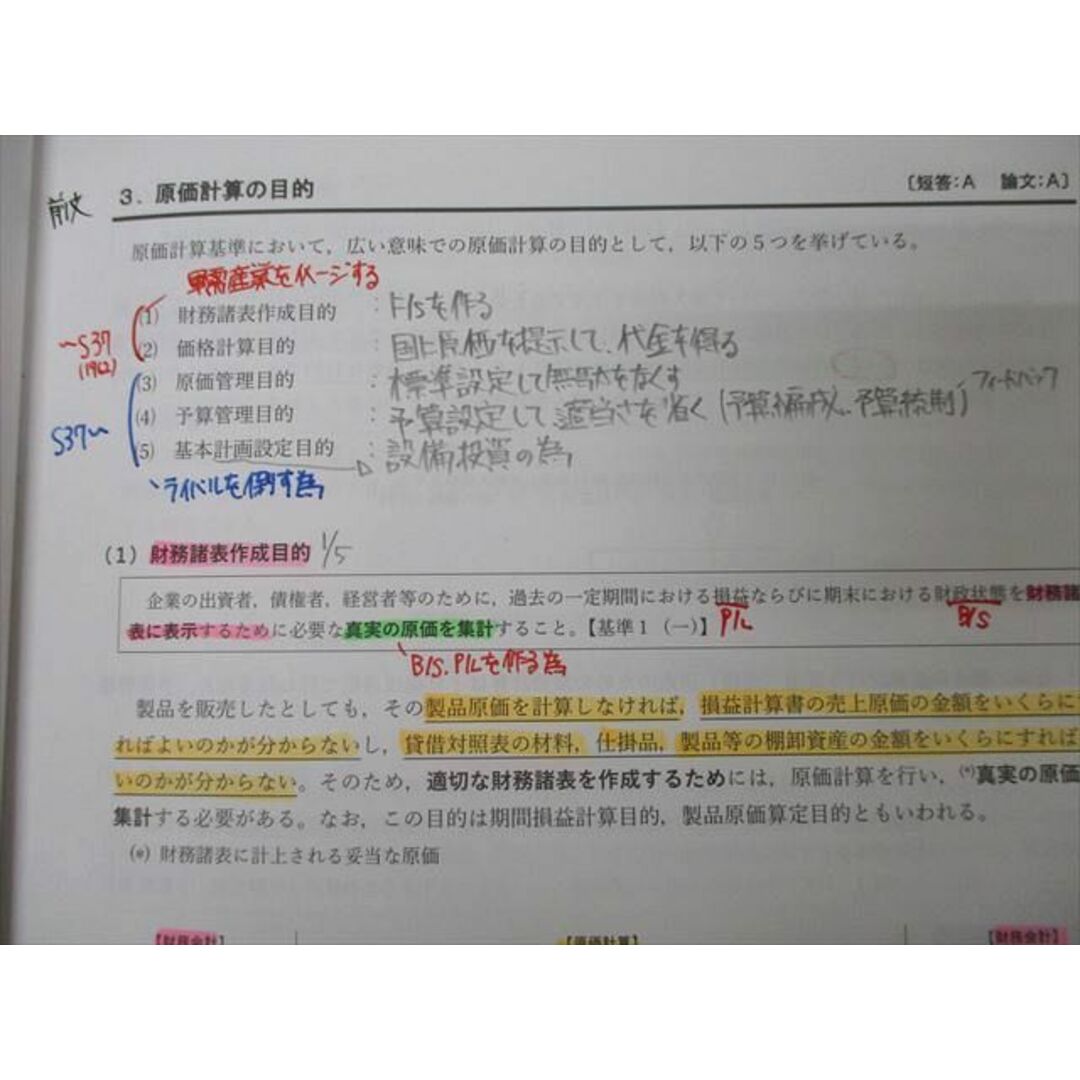 前文
3．原価計算の目的
〔短答：A　論文：A〕
原価計算基準において，広い意味での原価計算の目的として，以下の５つを挙げている。
軍需産業をイメージする
(1)　財務諸表作成目的　：F/Sを作る
(2)　価格計算目的　：国に原価を提示して、代金を得る
(3)　原価管理目的　：標準設定して無駄をなくす
(4)　予算管理目的　：予算設定して適当さを省く（予算編成、予算統制）フィードバック
(5)　基本計画設定目的　：設備投資の為
～S37
(1962)
S37～
ライバルを倒す為
（1）財務諸表作成目的 1/5
企業の出資者，債権者，経営者等のために，過去の一定期間における損益ならびに期末における財政状態を財務諸
表に表示するために必要な真実の原価を集計すること。【基準１（一）】
P/L
B/S
B/S.P/Lを作る為
製品を販売したとしても，その製品原価を計算しなければ，損益計算書の売上原価の金額をいくらに
ればよいのかが分からないし，貸借対照表の材料，仕掛品，製品等の棚卸資産の金額をいくらにすれば
いのかが分からない。そのため，適切な財務諸表を作成するためには，原価計算を行い，(*)真実の原価
集計する必要がある。なお，この目的は期間損益計算目的，製品原価算定目的ともいわれる。
(*) 財務諸表に計上される妥当な原価
【財務会計】
【原価計算】
【財務会計】